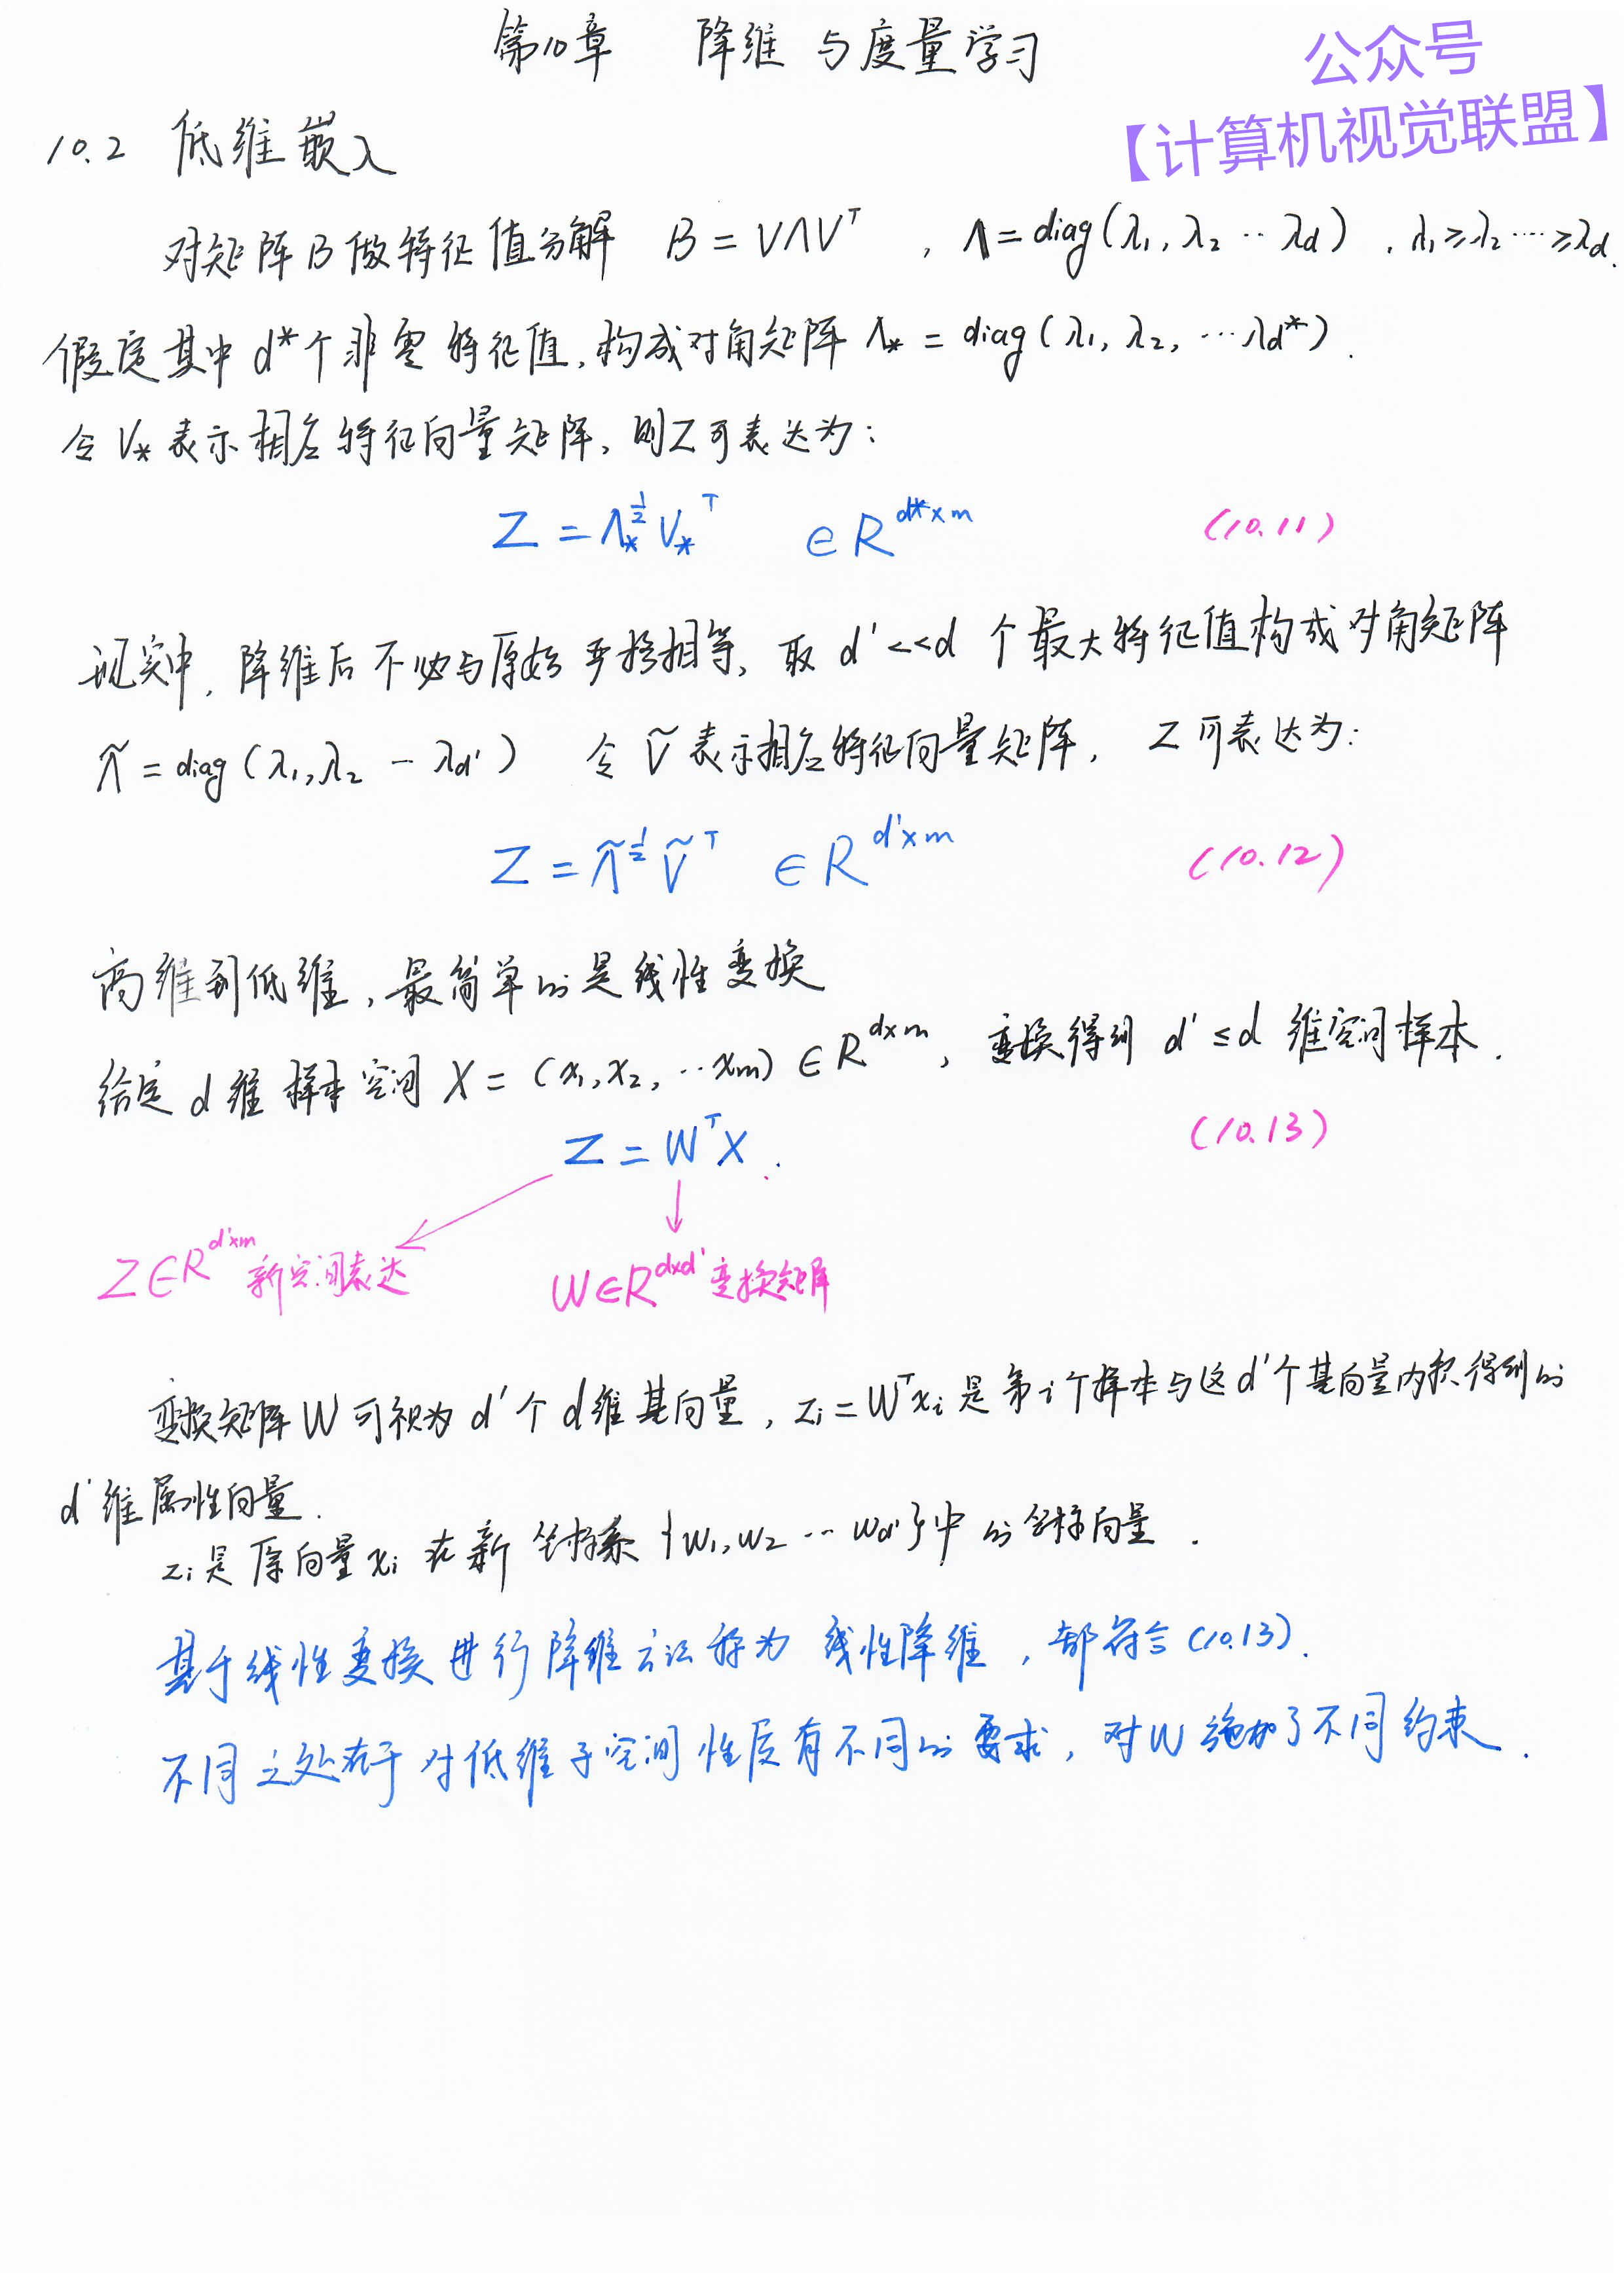 第10章 降维与度量学习
公众号
【计算机视觉联盟】
10.2 低维嵌入
对矩阵B做特征值分解 B = VΛV^T , Λ = diag(λ₁, λ₂ ·· λd) , λ₁≥λ₂ ···· ≥λd.
假定其中 d* 个非零特征值,构成对角矩阵 Λ* = diag(λ₁, λ₂, ···λd*).
令 V* 表示相应特征向量矩阵,则Z可表达为:
Z = Λ*^½ V*^T ∈ R^{d*×m} (10.11)
现实中,降维后不必与原始严格相等,取 d' << d 个最大特征值构成对角矩阵
Λ̃ = diag(λ₁,λ₂ -- λd') 令 Ṽ 表示相应特征向量矩阵, Z可表达为:
Z = Λ̃^½ Ṽ^T ∈ R^{d'×m} (10.12)
高维到低维,最简单的是线性变换
给定 d 维样本空间 X = (x₁,x₂, ··xm) ∈ R^{d×m}, 变换得到 d' ≤ d 维空间样本.
Z = W^T X. (10.13)
Z∈R^{d'×m} 新空间表达 W∈R^{d×d'} 变换矩阵
变换矩阵W可视为 d' 个 d维基向量, zi = W^T xi 是第i个样本与这d'个基向量内积得到的
d'维属性向量.
zi是原向量xi在新坐标系{w₁,w₂ ··· wd'}中的坐标向量.
基于线性变换进行降维方法称为线性降维,都符合(10.13).
不同之处在于对低维子空间性质有不同的要求,对W施加了不同约束.